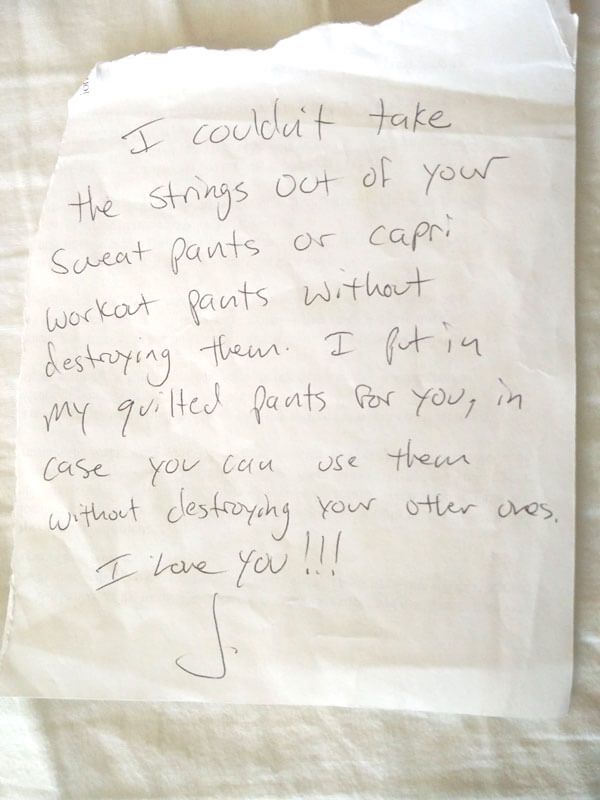 I couldn't take
the strings out of your
sweat pants or capri
workout pants without
destroying them. I put in
my quilted pants for you, in
case you can use them
without destroying your other ones.
I love you!!!
J.